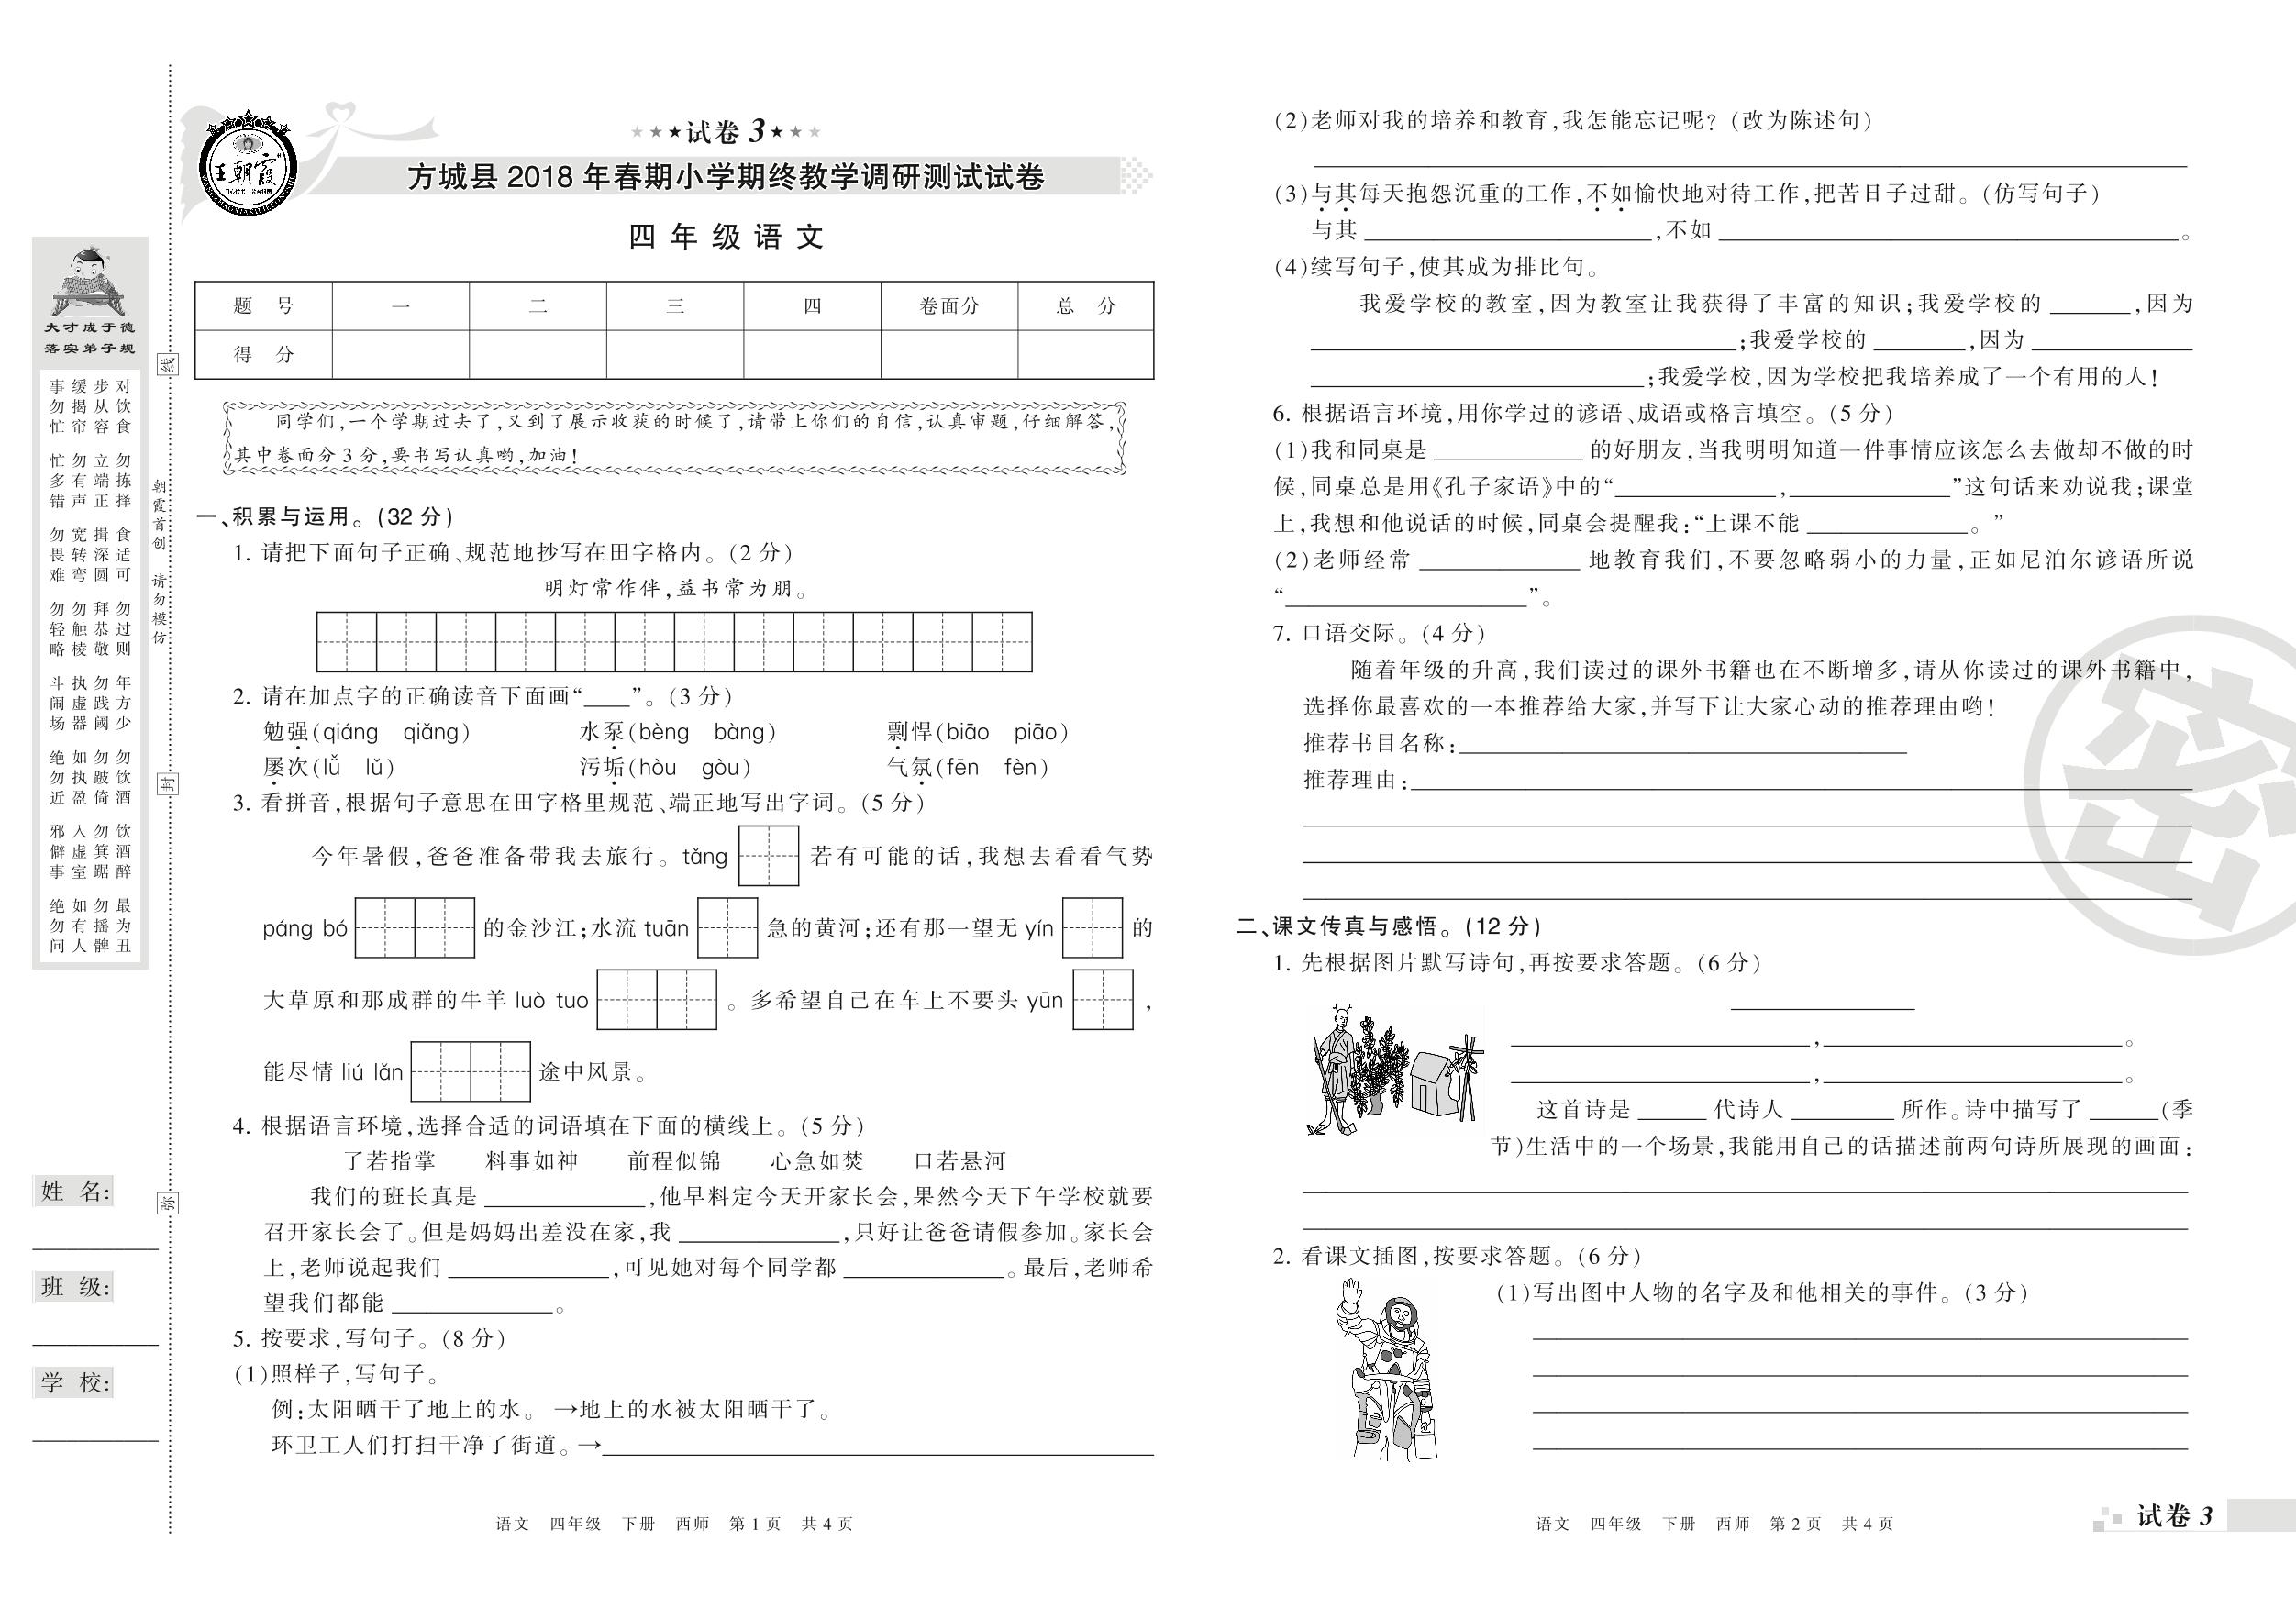 大才成于德
落实弟子规
对饮食 勿拣择 食适可 勿过则
年方少 勿饮酒 饮酒醉 最为丑
步从容 立端正 揖深圆 拜恭敬
勿践阈 勿跛倚 勿箕踞 勿摇髀
缓揭帘 勿有声 宽转弯 勿触棱
执虚器 如执盈 入虚室 如有人
事勿忙 忙多错 勿畏难 勿轻略
斗闹场 绝勿近 邪僻事 绝勿问
朝霞首创 请勿模仿
姓 名:
班 级:
学 校:
线
封
弥
王朝霞
★★★试卷 3★★★
方城县 2018 年春期小学期终教学调研测试试卷
四 年 级 语 文
题 号 一 二 三 四 卷面分 总 分
得 分
同学们,一个学期过去了,又到了展示收获的时候了,请带上你们的自信,认真审题,仔细解答,
其中卷面分 3 分,要书写认真哟,加油!
一、积累与运用。(32 分)
1. 请把下面句子正确、规范地抄写在田字格内。(2 分)
明灯常作伴,益书常为朋。
2. 请在加点字的正确读音下面画“____”。(3 分)
勉强(qiáng qiǎng) 水泵(bèng bàng) 剽悍(biāo piāo)
屡次(lǚ lǔ) 污垢(hòu gòu) 气氛(fēn fèn)
3. 看拼音,根据句子意思在田字格里规范、端正地写出字词。(5 分)
今年暑假,爸爸准备带我去旅行。tǎng 若有可能的话,我想去看看气势
páng bó 的金沙江;水流 tuān 急的黄河;还有那一望无 yín 的
大草原和那成群的牛羊 luò tuo 。多希望自己在车上不要头 yūn ,
能尽情 liú lǎn 途中风景。
4. 根据语言环境,选择合适的词语填在下面的横线上。(5 分)
了若指掌 料事如神 前程似锦 心急如焚 口若悬河
我们的班长真是 ____________,他早料定今天开家长会,果然今天下午学校就要
召开家长会了。但是妈妈出差没在家,我 ____________,只好让爸爸请假参加。家长会
上,老师说起我们 ____________,可见她对每个同学都 ____________。最后,老师希
望我们都能 ____________。
5. 按要求,写句子。(8 分)
(1)照样子,写句子。
例:太阳晒干了地上的水。 →地上的水被太阳晒干了。
环卫工人们打扫干净了街道。→____________
语文 四年级 下册 西师 第 1 页 共 4 页
(2)老师对我的培养和教育,我怎能忘记呢? (改为陈述句)
(3)与其每天抱怨沉重的工作,不如愉快地对待工作,把苦日子过甜。(仿写句子)
与其 ____________,不如 ____________。
(4)续写句子,使其成为排比句。
我爱学校的教室,因为教室让我获得了丰富的知识;我爱学校的 ______,因为
____________;我爱学校的 ______,因为 ____________
____________;我爱学校,因为学校把我培养成了一个有用的人!
6. 根据语言环境,用你学过的谚语、成语或格言填空。(5 分)
(1)我和同桌是 ____________ 的好朋友,当我明明知道一件事情应该怎么去做却不做的时
候,同桌总是用《孔子家语》中的“____________,____________”这句话来劝说我;课堂
上,我想和他说话的时候,同桌会提醒我:“上课不能 ____________。”
(2)老师经常 ____________ 地教育我们,不要忽略弱小的力量,正如尼泊尔谚语所说
“____________”。
7. 口语交际。(4 分)
随着年级的升高,我们读过的课外书籍也在不断增多,请从你读过的课外书籍中,
选择你最喜欢的一本推荐给大家,并写下让大家心动的推荐理由哟!
推荐书目名称:____________
推荐理由:____________
密
二、课文传真与感悟。(12 分)
1. 先根据图片默写诗句,再按要求答题。(6 分)
____________,____________。
____________,____________。
这首诗是 ______ 代诗人 ________ 所作。诗中描写了 ______(季
节)生活中的一个场景,我能用自己的话描述前两句诗所展现的画面:
2. 看课文插图,按要求答题。(6 分)
(1)写出图中人物的名字及和他相关的事件。(3 分)
语文 四年级 下册 西师 第 2 页 共 4 页
试卷 3